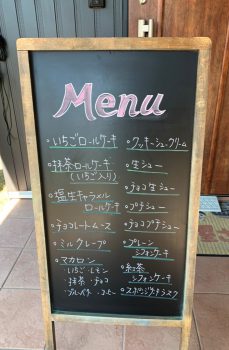 Menu
・いちごロールケーキ
・抹茶ロールケーキ
(いちご入り)
・塩生キャラメル
ロールケーキ
・チョコレートムース
・ミルクレープ
・マカロン
いちご・レモン
抹茶・チョコ
・クッキーシュークリーム
・生シュー
・チョコ生シュー
・プチシュー
・チョコプチシュー
・プレーン
シフォンケーキ
・紅茶
シフォンケーキ